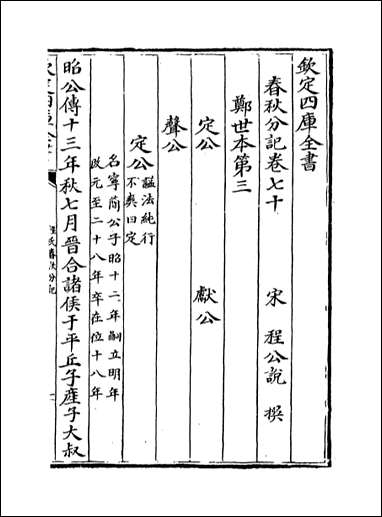 欽定四庫全書
春秋分記卷七十
宋 程公說 撰
鄭世本第三
定公 獻公
聲公
定公 諡法純行
不爽曰定
名寧簡公子昭十二年嗣立明年
改元至二十八年卒在位十八年
昭公傳十三年秋七月晉合諸侯于平丘子產子大叔
春秋分記